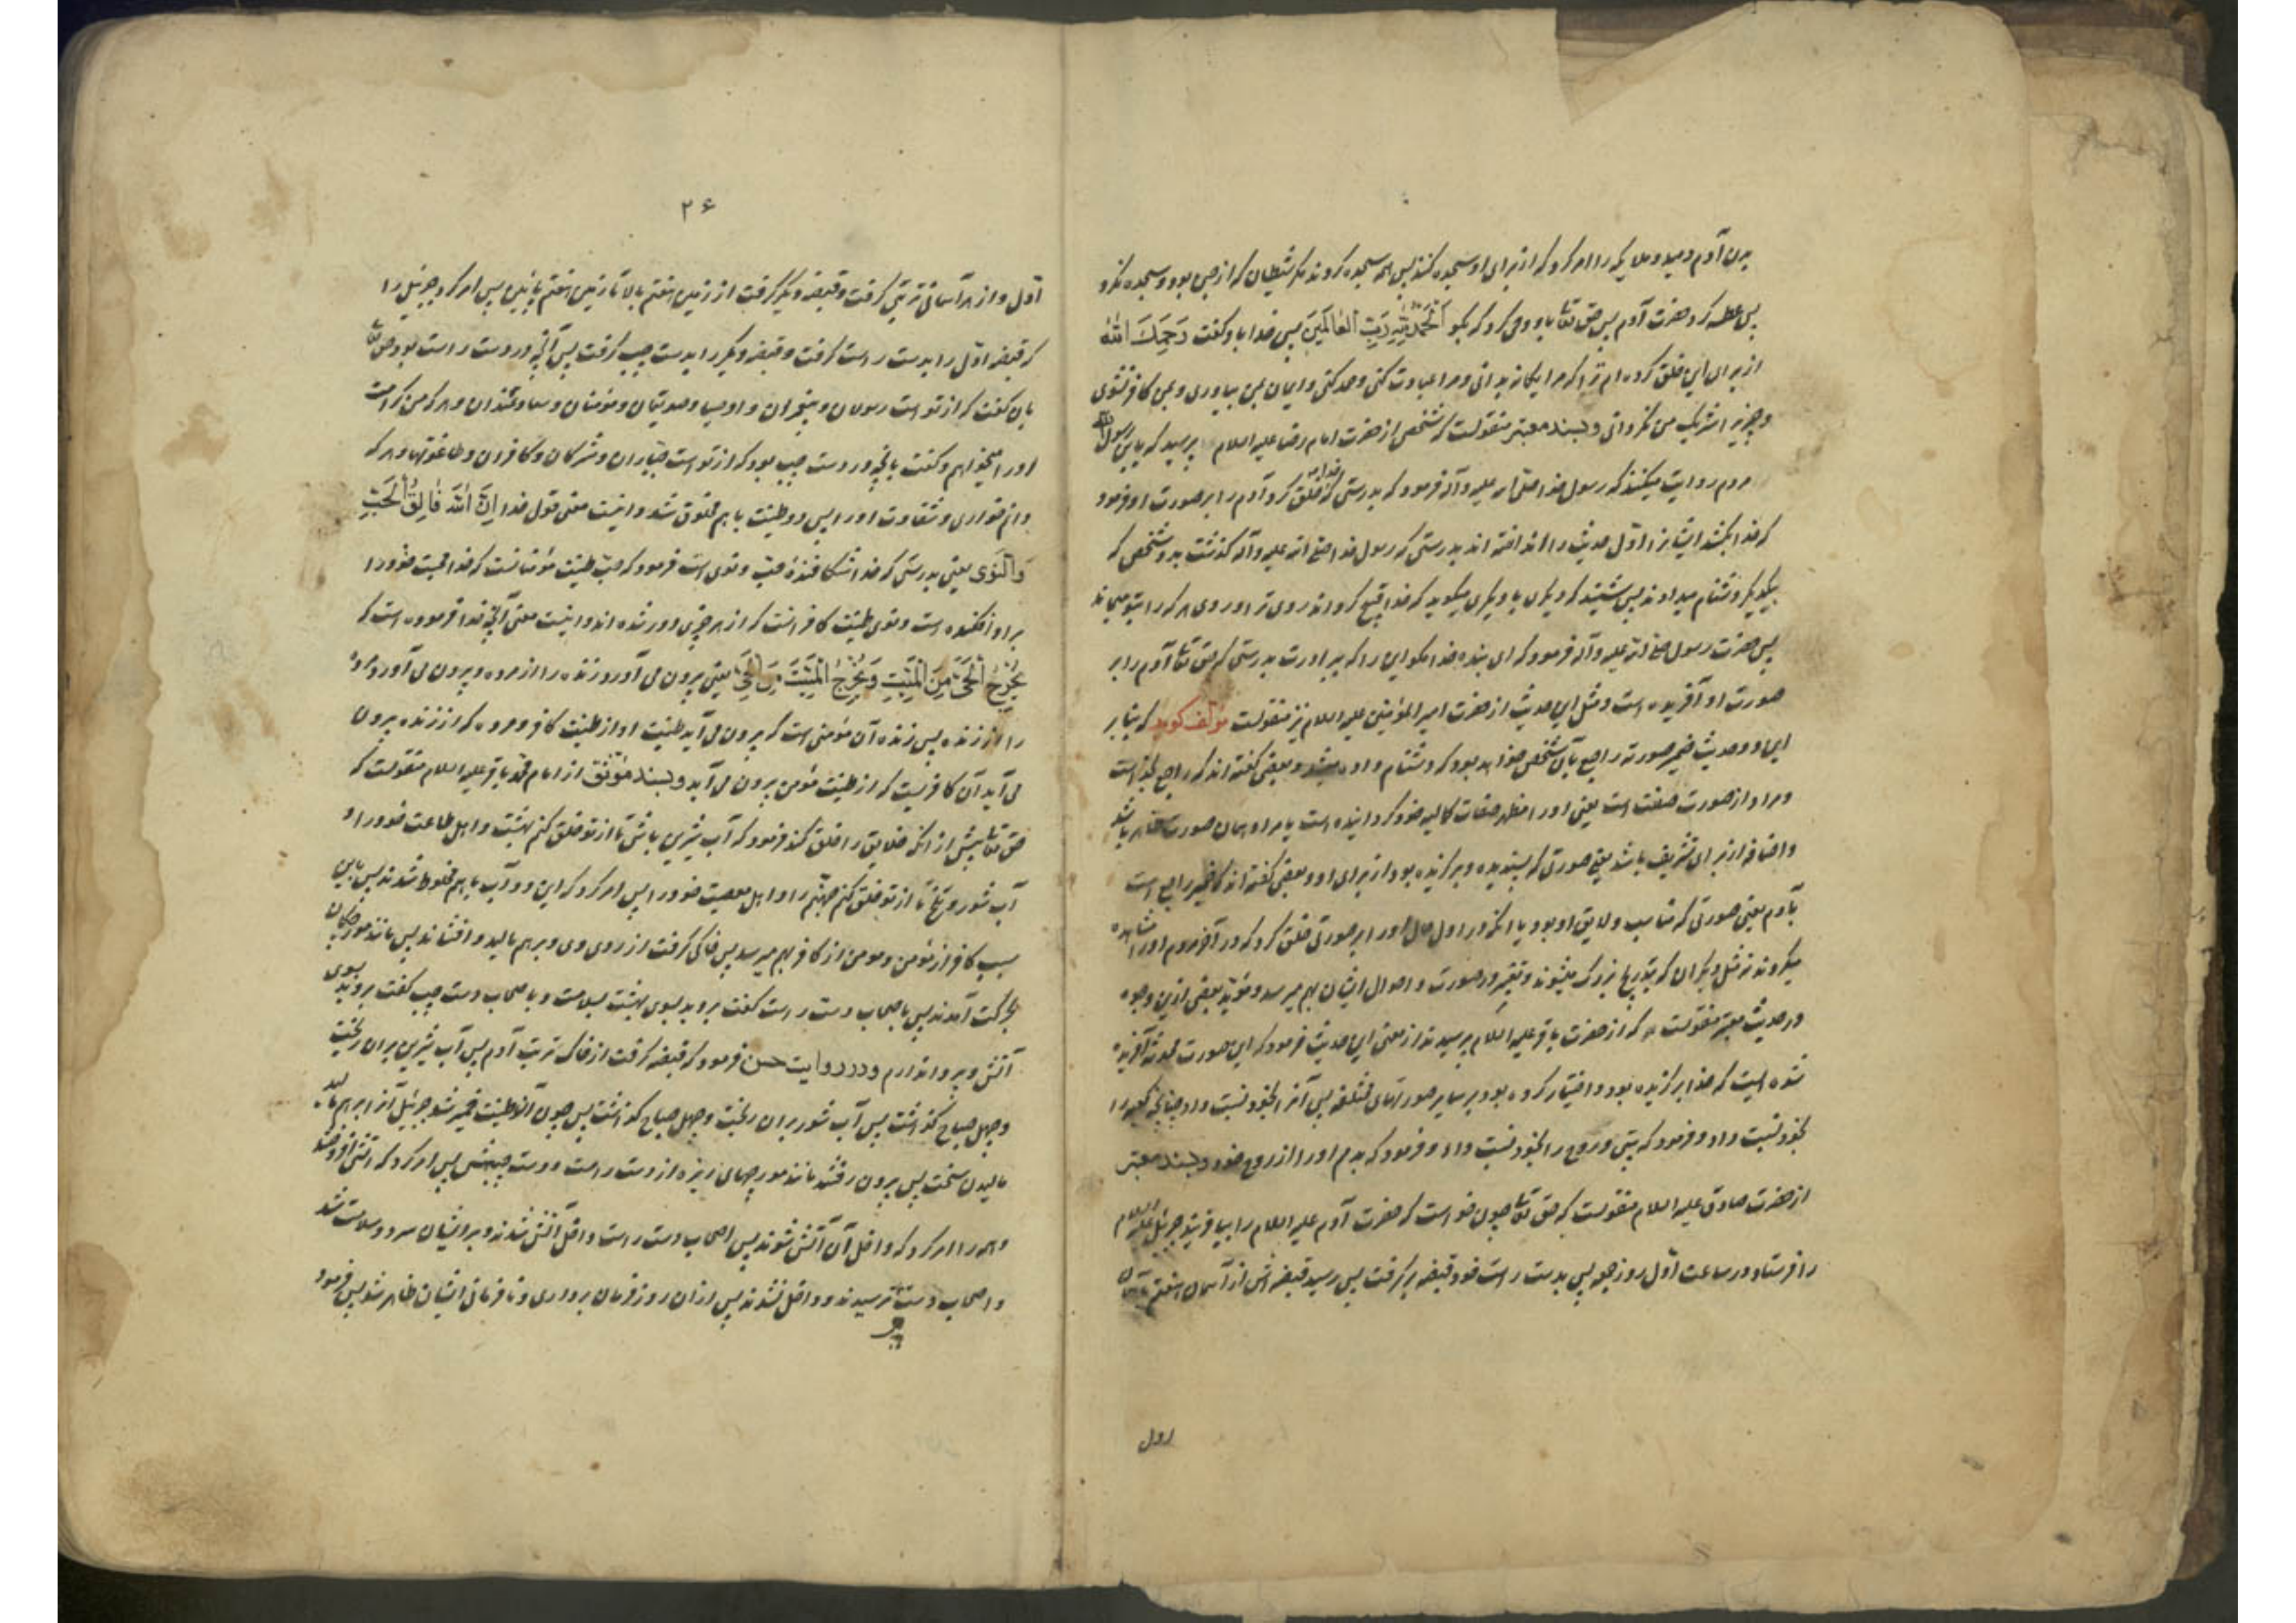 بدن آدم دمید و ملایکه را امر کرد که از برای او سجده کنند پس همه سجده کردند مگر شیطان که از جن بود و سجده نکرد
پس عطسه کرد حضرت آدم پس حق تعالی باو وحی کرد که بگو اَلْحَمْدُ لِلّٰهِ رَبِّ الْعٰالَمِينَ پس خدا باو گفت رَحِمَكَ اللّٰهُ
از برای این خلق کرده ام ترا که مرا یگانه بدانی و مرا عبادت کنی و حمد کنی و ایمان بمن بیاوری و بمن کافر نشوی
و چیزیرا شریک من نگردانی و بسند معتبر منقولست که شخصی از حضرت امام رضا علیه السلام پرسید که یابن رسول الله
مردم روایت میکنند که رسول خدا صلی الله علیه و آله فرمود که بدرستی که خدا خلق کرد آدم را بر صورت او فرمود
که خدا بکشد ایشانرا اول حدیث را انداخته اند بدرستی که رسول خدا صلی الله علیه و آله گذشت بدو شخصی که
بیکدیگر دشنام میدادند پس شنید که یکی با دیگری میگوید که خدا قبیح گرداند روی ترا و روی هر که را بتو میماند
پس حضرت رسول صلی الله علیه و آله فرمود که ای بنده خدا مگو این را که ببرادرت بدرستی که حق تعالی آدم را بر
صورت او آفریده است و مثل این حدیث از حضرت امیر المؤمنین علیه السلام نیز منقولست مؤلف گوید که بنابر
این دو حدیث ضمیر صورته راجع بآن شخص خواهد بود که دشنام داده میشد و بعضی گفته اند که راجع بخداست
و مراد از صورت صفت است یعنی او را مظهر صفات کمالیه خود گردانیده است یا مراد همان صورت ظاهر باشد
و اضافه از برای تشریف باشد یعنی صورتی که پسندیده و برگزیده بود از برای او و بعضی گفته اند که ضمیر راجع است
بآدم یعنی صورتی که مناسب و لایق او بود یا آنکه در اول حال او را بر صورتی خلق کرد که در آخر مردم او را مشاهده
میکردند نه مثل دیگران که بتدریج بزرگ میشوند و تغییر در صورت و احوال ایشان بهم میرسد و مؤید بعضی ازین وجوه
در حدیث معتبر منقولست که از حضرت باقر علیه السلام پرسیدند از معنی این حدیث فرمود که این صورت محدثه آفریده
شده ایست که خدا برگزیده بود و اختیار کرده بود بر سایر صورتهای مختلفه پس آنرا بخود نسبت داد چنانچه کعبه را
بخود نسبت داد و فرمود که بیتی و روح را بخود نسبت داد و فرمود که بدم او را از روح خود و بسند معتبر
از حضرت صادق علیه السلام منقولست که حق تعالی چون خواست که حضرت آدم علیه السلام را بیافریند جبرئیل علیه السلام
را فرستاد در ساعت اول روز جمعه پس بدست راست خود قبضه برگرفت پس رسید قبضه اش از آسمان هفتم تا آسمان
اول
۲۶
اول و از هر آسمانی تربتی گرفت و قبضه دیگر گرفت از زمین هفتم بالا تا زمین هفتم پائین پس امر کرد جبرئیل را
که قبضه اول را بدست راست گرفت و قبضه دیگر را بدست چپ گرفت پس آنچه در دست راست بود حق تعالی
بآن گفت که از تو است رسولان و پیغمبران و اوصیا و صدیقان و مؤمنان و سعادتمندان و هر که من کرامت
او را میخواهم و گفت بآنچه در دست چپ بود که از تو است جباران و مشرکان و کافران و طاغوتها و هر که
دانم خواری و شقاوت او را پس دو طینت با هم مخلوق شد و اینست معنی قول خدا اِنَّ اللّٰهَ فٰالِقُ الْحَبِّ
وَ النَّوٰى یعنی بدرستی که خدا شکافندهٔ حب و نوی است فرمود که حب طینت مؤمنانست که خدا محبت خود را
بر او افکنده است و نوی طینت کافرانست که از هر چیزی دور شده اند و اینست معنی آنچه خدا فرموده است که
يُخْرِجُ الْحَيَّ مِنَ الْمَيِّتِ وَ يُخْرِجُ الْمَيِّتَ مِنَ الْحَيِّ یعنی بیرون می آورد زنده را از مرده و بیرون می آورد مرده
را از زنده پس زنده آن مؤمنی است که بیرون می آید طینت او از طینت کافر و مرده که از زنده بیرون
می آید آن کافریست که از طینت مؤمن بیرون می آید و بسند مؤثق از امام محمد باقر علیه السلام منقولست که
حق تعالی پیش از آنکه خلایق را خلق کند فرمود که آب شیرین باش تا از تو خلق کنم بهشت و اهل طاعت خود را و
آب شور و تلخ تا از تو خلق کنم جهنم را و اهل معصیت خود را پس امر کرد که این دو آب با هم مخلوط شدند پس باین
سبب کافر از مؤمن و مومن از کافر بهم میرسد پس خاکی گرفت از روی زمی و برهم مالید و افشاند پس مانند مورچگان
بحرکت آمدند پس باصحاب دست راست گفت بروید بسوی بهشت بسلامت و باصحاب دست چپ گفت بروید بسوی
آتش و پروا ندارم و در روایت حسن فرمود که قبضه گرفت از خاک تربت آدم پس آب شیرین بر آن ریخت
و چهل صباح گذاشت پس آب شور بر آن ریخت و چهل صباح گذاشت پس چون آن طینت خمیر شد جبرئیل آنرا بر هم مالید
مالیدن سخت پس بیرون رفتند مانند مورچهای ریزه از دست راست و دست چپش پس امر کرد که آتشی افروختند
و همه را امر کرد که داخل آن آتش شوند پس اصحاب دست راست داخل آتش شدند و بر ایشان سرد و سلامت شد
و اصحاب دست چپ ترسیدند و داخل نشدند پس از آن روز فرمان برداری و نافرمانی ایشان ظاهر شد پس فرمود